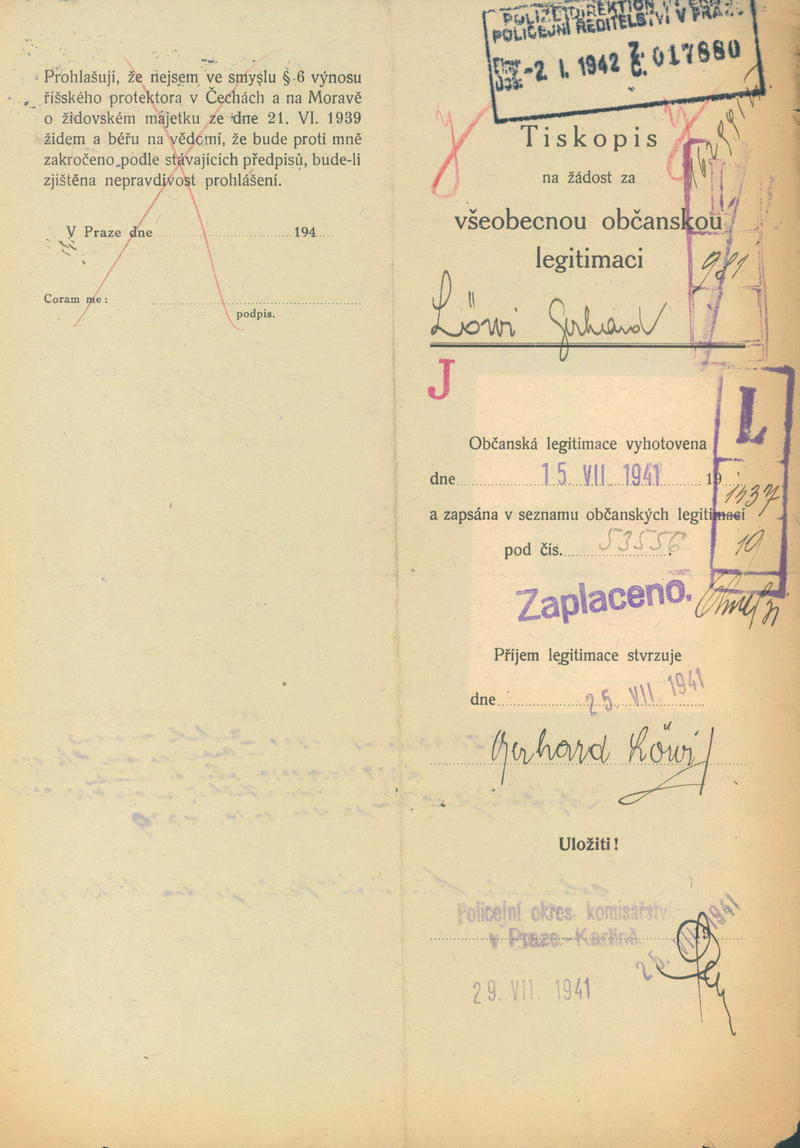 Prohlašuji, že nejsem ve smyslu § 6 výnosu
říšského protektora v Čechách a na Moravě
o židovském majetku ze dne 21. VI. 1939
židem a béřu na vědomí, že bude proti mně
zakročeno podle stávajících předpisů, bude-li
zjištěna nepravdivost prohlášení.
V Praze dne 194
Coram me:
podpis.
POLICEJNÍ ŘEDITELSTVÍ V PRAZE
-2. I. 1942 017880
Tiskopis
na žádost za
všeobecnou občanskou
legitimaci
981
Löwi Gerhard
J
L
Občanská legitimace vyhotovena
dne 15 VII. 1941 19
1537
a zapsána v seznamu občanských legitimací
pod čís. 53556
19
Zaplaceno.
Příjem legitimace stvrzuje
dne 25. VII 1941
Gerhard Löwi
Uložiti!
Policejní okres. komisařství
v Praze-Karlíně
29. VII. 1941